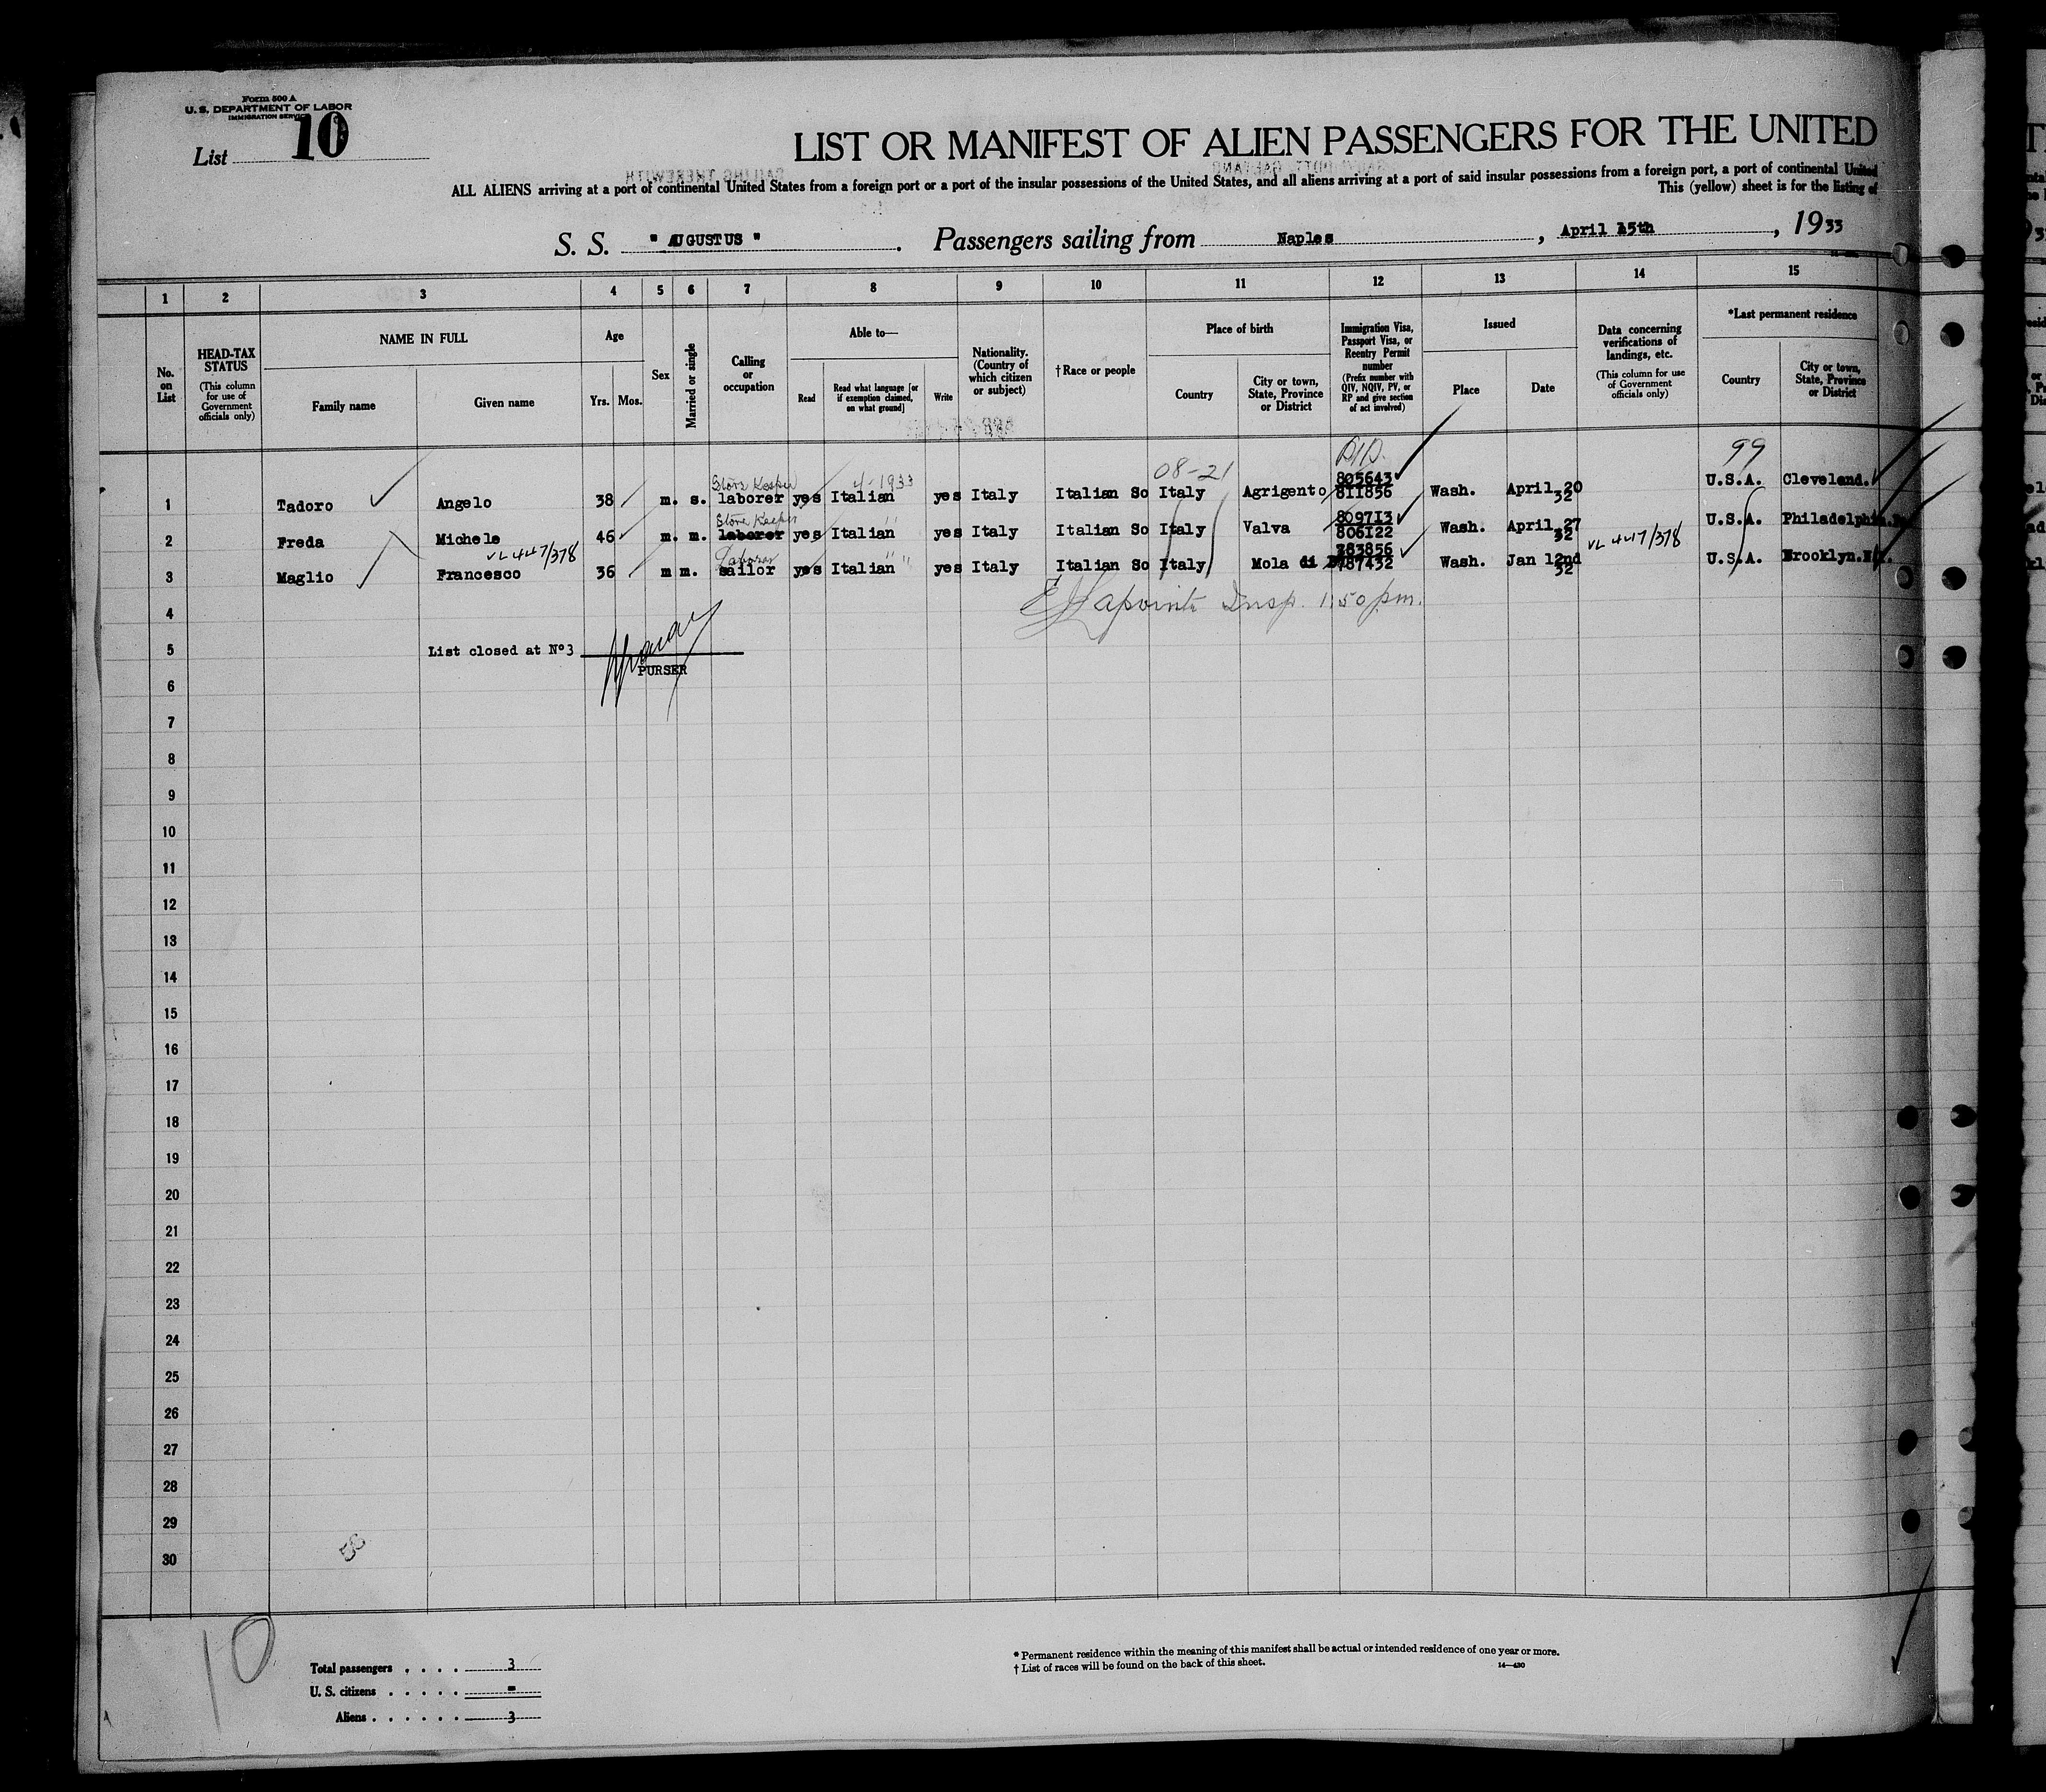 Form 500 A
U. S. DEPARTMENT OF LABOR
IMMIGRATION SERVICE
List 10
LIST OR MANIFEST OF ALIEN PASSENGERS FOR THE UNITED
ALL ALIENS arriving at a port of continental United States from a foreign port or a port of the insular possessions of the United States, and all aliens arriving at a port of said insular possessions from a foreign port, a port of continental United
This (yellow) sheet is for the listing of
S. S. " AUGUSTUS " . Passengers sailing from Naples , April 15th , 1933
1 2 3 4 5 6 7 8 9 10 11 12 13 14 15
No. on List
HEAD-TAX STATUS
(This column for use of Government officials only)
NAME IN FULL
Family name Given name
Age
Yrs. Mos.
Sex
Married or single
Calling or occupation
Able to—
Read
Read what language [or if exemption claimed, on what ground]
Write
Nationality. (Country of which citizen or subject)
† Race or people
Place of birth
Country
City or town, State, Province or District
Immigration Visa, Passport Visa, or Reentry Permit number
(Prefix number with QIV, NQIV, PV, or RP and give section of act involved)
Issued
Place Date
Data concerning verifications of landings, etc.
(This column for use of Government officials only)
*Last permanent residence
Country
City or town, State, Province or District
08-21 99
Store Keeper 4-1933 805643
1 Tadoro Angelo 38 m. s. laborer yes Italian yes Italy Italian So Italy Agrigento 811856 Wash. April 20 32 U.S.A. Cleveland.
Store Keeper " 809713
2 Freda Michele 46 m. m. laborer yes Italian yes Italy Italian So Italy Valva 806122 Wash. April 27 32 U.S.A. Philadelphia
VL 447/378 Laborer " " 383856 VL 447/378
3 Maglio Francesco 36 m m. sailor yes Italian yes Italy Italian So Italy Mola di 787432 Wash. Jan 12nd 32 U.S.A. Brooklyn.N.Y.
4 Lapointe Insp. 1:50 pm.
5 List closed at Nº3
PURSER
6
7
8
9
10
11
12
13
14
15
16
17
18
19
20
21
22
23
24
25
26
27
28
29
30
10
Total passengers . . . . 3
U. S. citizens . . . . . -
Aliens . . . . . . 3
* Permanent residence within the meaning of this manifest shall be actual or intended residence of one year or more.
† List of races will be found on the back of this sheet.
14—430